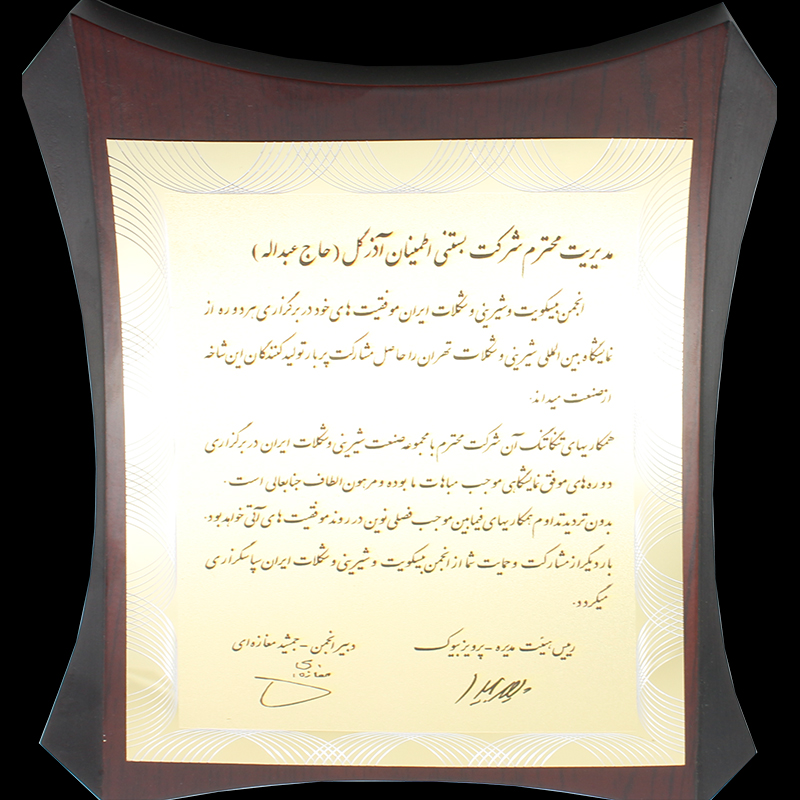 مدیریت محترم شرکت بستنی اطمینان آذر گل (حاج عبداله)
انجمن بیسکویت و شیرینی و شکلات ایران موفقیت های خود در برگزاری هر دوره از
نمایشگاه بین المللی شیرینی و شکلات تهران را حاصل مشارکت پربار تولید کنندگان این شاخه
از صنعت میداند.
همکاریهای تنگاتنگ آن شرکت محترم با مجموعه صنعت شیرینی و شکلات ایران در برگزاری
دوره های موفق نمایشگاهی موجب مباهات ما بوده و مرهون الطاف جنابعالی است.
بدون تردید تداوم همکاریهای فیمابین موجب فصلی نوین در روند موفقیت های آتی خواهد بود.
بار دیگر از مشارکت و حمایت شما از انجمن بیسکویت و شیرینی و شکلات ایران سپاسگزاری
میگردد.
رییس هیئت مدیره - پرویز بیوک
دبیر انجمن - جمشید مغازه ای